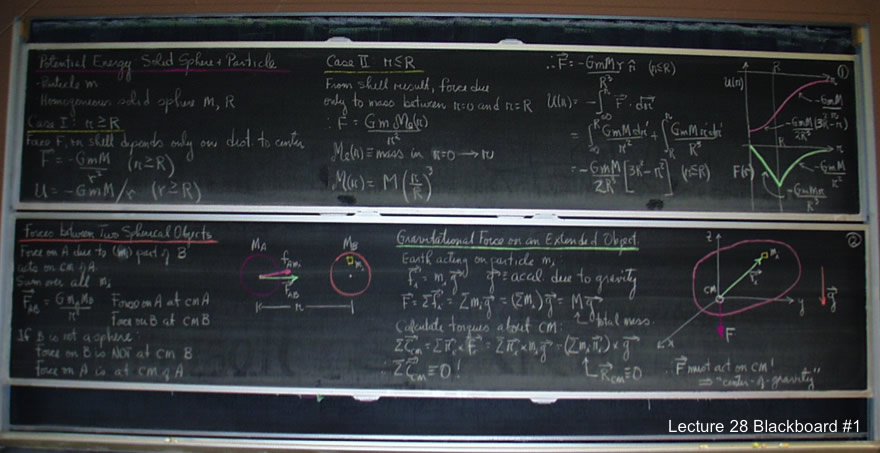 Potential Energy Solid Sphere + Particle
- Particle m
Homogeneous solid sphere M, R
Case I: r ≥ R
Force F, on shell depends only on dist. to center
F⃗ = -GmM/r² (r ≥ R)
U = -GmM/r (r ≥ R)
Case II: r ≤ R
From shell result, force due
only to mass between r=0 and r=R
∴ F = G m Ms(r)/r²
Ms(r) ≡ mass in r=0 → r
M(r) = M (r/R)³
∴ F⃗ = -GmMr/R³ r̂ (r ≤ R)
U(r) = -∫ F⃗ · dr⃗
= ∫ GmM dr'/r'² + ∫ GmM r'dr'/R³
= -GmM/2R³ [3R² - r²] (r ≤ R)
①
U(r)
R
r
-GmM/r
-GmM/2R³ (3R² - r²)
F(r)
R
r
-GmM/r²
-GmMr/R³
Forces between Two Spherical Objects
Force on A due to (m₁) part of B
acts on CM of A.
Sum over all m₁
F⃗AB = G MA MB/r² Force on A at CM A
Force on B at CM B
If B is not a sphere:
Force on B is NOT at CM B
Force on A is at CM of A
MA
MB
f⃗Am₁
f⃗AB
m₁
r
Gravitational Force on an Extended Object
Earth acting on particle mᵢ:
f⃗ᵢ = mᵢ g⃗ g⃗ ≡ accl. due to gravity
F⃗ = Σf⃗ᵢ = Σmᵢg⃗ = (Σmᵢ)g⃗ = M g⃗
total mass
Calculate torques about CM:
Στ⃗cm = Σr⃗ᵢ × f⃗ᵢ = Σr⃗ᵢ × mᵢg⃗ = (Σmᵢr⃗ᵢ) × g⃗
∴ Στ⃗cm ≡ 0!
R⃗cm ≡ 0
②
z
mᵢ
r⃗ᵢ
CM
y
x
F⃗
g⃗
∴ F⃗ must act on CM!
⇒ "center-of-gravity"
Lecture 28 Blackboard #1